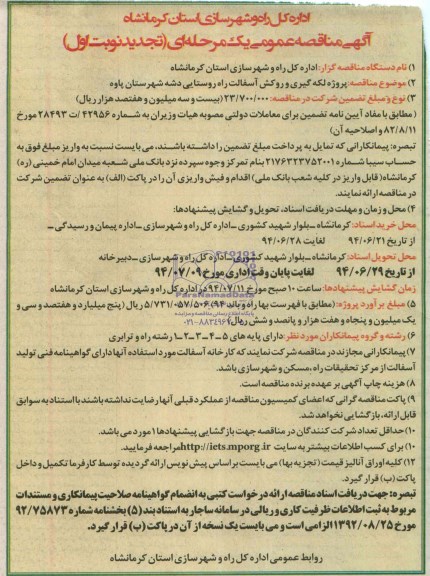 اداره کل راه و شهرسازی استان کرمانشاه
آگهی مناقصه عمومی یک مرحله‌ای (تجدید نوبت اول)
۱) نام دستگاه مناقصه گزار: اداره کل راه و شهرسازی استان کرمانشاه
۲) موضوع مناقصه: پروژه لکه گیری و روکش آسفالت راه روستایی دشه شهرستان پاوه
۳) نوع و مبلغ تضمین شرکت در مناقصه: ۲۳/۷۰۰/۰۰۰ (بیست و سه میلیون و هفتصد هزار ریال)
(مطابق با مفاد آیین نامه تضمین برای معاملات دولتی مصوبه هیات وزیران به شماره ۴۲۹۵۶ /ت ۲۸۴۹۳ مورخ
۸۲/۸/۱۱ و اصلاحیه آن)
تبصره: پیمانکارانی که تمایل به پرداخت مبلغ تضمین را داشته باشند، می بایست نسبت به واریز مبلغ فوق به
حساب سیبا شماره ۲۱۷۶۳۲۳۷۵۲۰۰۱ بنام تمرکز وجوه سپرده نزد بانک ملی شعبه میدان امام خمینی (ره)
کرمانشاه (قابل واریز در کلیه شعب بانک ملی) اقدام و فیش واریزی آن را در پاکت (الف) به عنوان تضمین شرکت
در مناقصه ارائه نمایند.
۴) محل و زمان و مهلت دریافت اسناد، تحویل و گشایش پیشنهادها:
محل خرید اسناد: کرمانشاه ـ بلوار شهید کشوری ـ اداره کل راه و شهرسازی ـ اداره پیمان و رسیدگی ـ
از تاریخ ۹۴/۰۶/۲۱ لغایت ۹۴/۰۶/۲۸
محل تحویل اسناد: کرمانشاه ـ بلوار شهید کشوری ـ اداره کل راه و شهرسازی ـ دبیرخانه
از تاریخ ۹۴/۰۶/۲۹ لغایت پایان وقت اداری مورخ ۹۴/۰۷/۰۹
زمان گشایش پیشنهادها: ساعت ۱۰ صبح مورخ ۹۴/۰۷/۱۱ در اداره کل راه و شهرسازی استان کرمانشاه
۵) مبلغ برآورد پروژه: (مطابق با فهرست بها راه و باند ۹۴) ۵/۷۳۱/۰۵۷/۵۰۶ ریال (پنج میلیارد و هفتصد و سی و
یک میلیون و پنجاه و هفت هزار و پانصد و شش ریال)
۶) رشته و گروه پیمانکاران مورد نظر: دارای پایه های ۵-۴-۳-۲-۱ رشته راه و ترابری
۷) پیمانکارانی مجازند در مناقصه شرکت نمایند که کارخانه آسفالت مورد استفاده آنها دارای گواهینامه فنی تولید
آسفالت از مرکز تحقیقات راه، مسکن و شهرسازی باشد.
۸) هزینه چاپ آگهی بر عهده برنده مناقصه است.
۹) پاکت مناقصه گرانی که اعضای کمیسیون مناقصه از عملکرد قبلی آنها رضایت نداشته باشند با استناد به سوابق
قابل ارائه، بازگشایی نخواهد شد.
۱۰) حداقل تعداد شرکت کنندگان در مناقصه جهت بازگشایی پیشنهادها ۱ مورد می باشد.
۱۰) برای کسب اطلاعات بیشتر به سایت http://iets.mporg.ir مراجعه فرمایید.
۱۲) کلیه اوراق آنالیز قیمت (تجزیه بها) می بایست بر اساس پیش نویس ارائه گردیده توسط کارفرما تکمیل و داخل
پاکت (ب) قرار گیرد.
تبصره: جهت دریافت اسناد مناقصه ارائه درخواست کتبی به انضمام گواهینامه صلاحیت پیمانکاری و مستندات
مربوط به ثبت اطلاعات ظرفیت کاری و ریالی در سامانه ساجار به استناد بند (۵) بخشنامه شماره ۹۲/۷۵۸۷۳
مورخ ۱۳۹۲/۰۸/۲۵ الزامی است و می بایست یک نسخه از آن در پاکت (ب) قرار گیرد.
روابط عمومی اداره کل راه و شهرسازی استان کرمانشاه